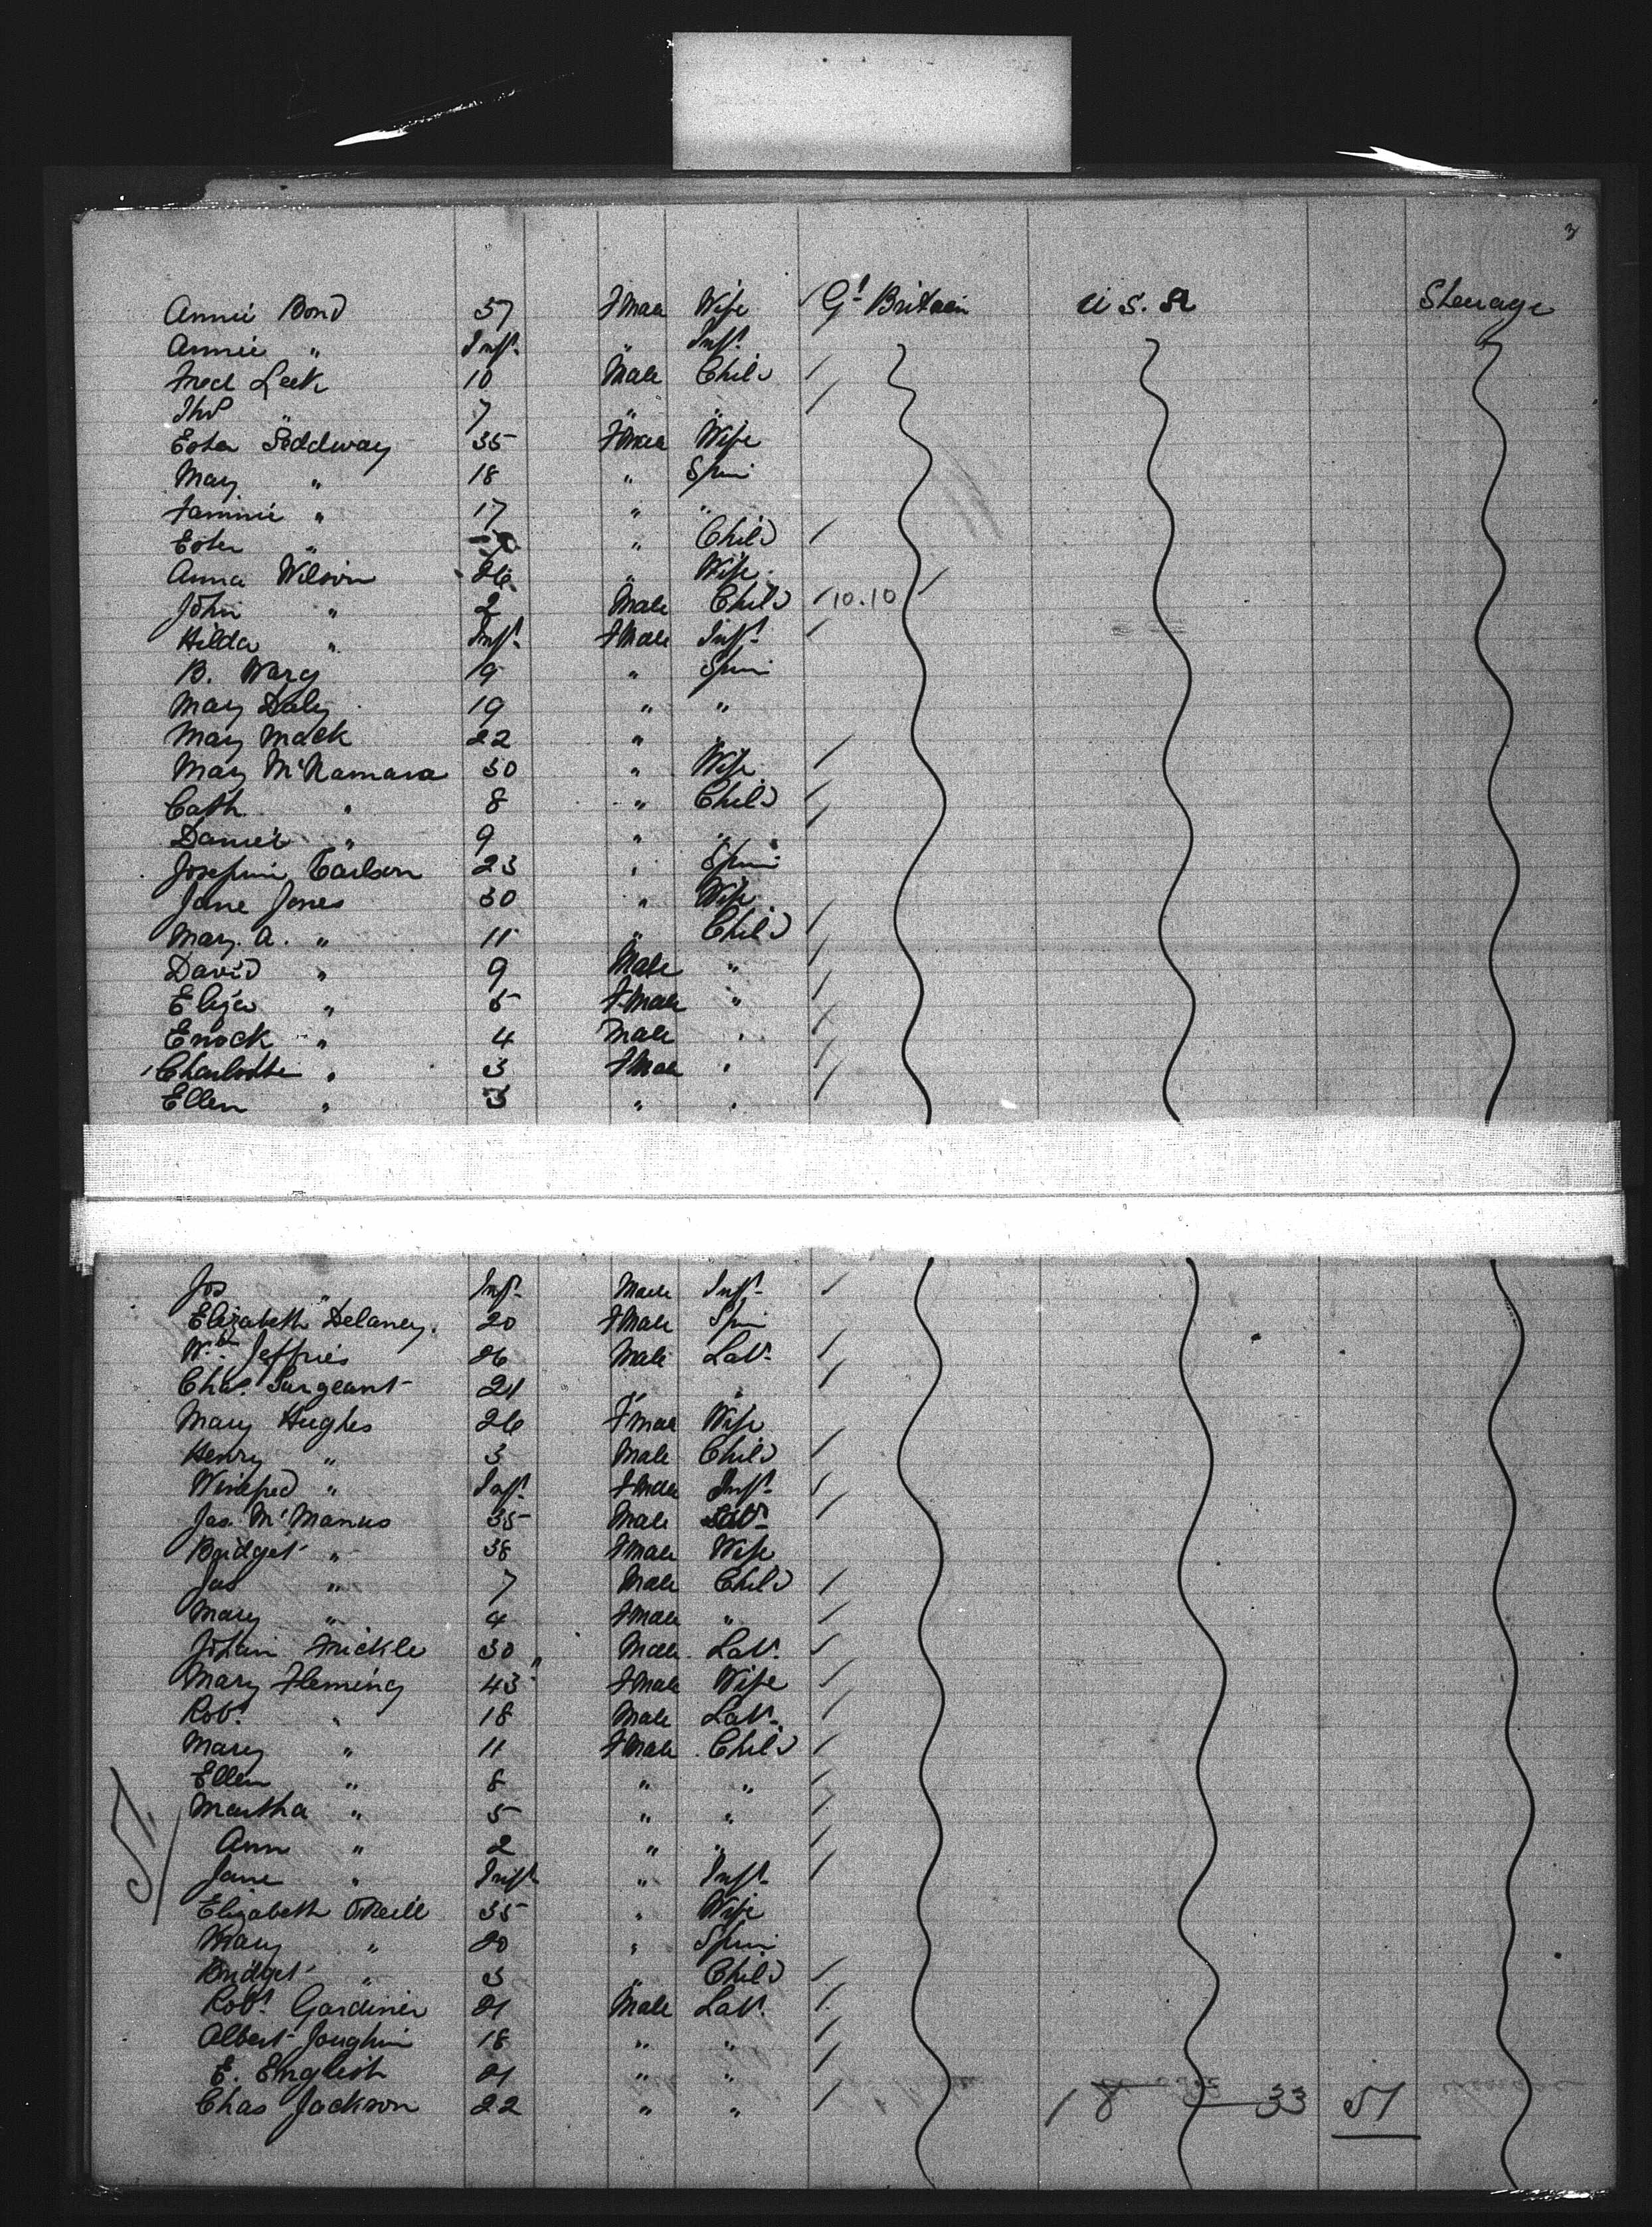 3
Annie Bond 37 Fmale Wife Gt Britain U S. A Steerage
Annie " Inft. " Inft.
Fred Leek 10 Male Child
Thos " 7 " "
Ester Siddway 35 Fmale Wife
Mary " 18 " Spin
Fannie " 17 " "
Ester " " Child
Anna Wilson 26 " Wife
John " 2 Male Child 10.10
Hilda " Inft. Fmale Inft.
B. Warg 19 " Spin
Mary Daly 19 " "
Mary Mack 22 " "
Mary McNamara 30 " Wife
Cath " 8 " Child
Daniel " 9 " "
Josefini Carlson 23 " Spin
Jane Jones 30 " Wife
Mary. A. " 11 " Child
David " 9 Male "
Eliza " 5 Fmale "
Enock " 4 Male "
Charlotte " 3 Fmale "
Ellen " 3 " "
Jos " Inft. Male Inft.
Elizabeth Delaney. 20 Fmale Spin
Wm. Jeffries 26 Male Labr.
Chas. Sargeant 21 " "
Mary Hughes 26 Fmale Wife
Henry " 3 Male Child
Winefred " Inft. Fmale Inft.
Jas. McManus 35 Male Labr.
Bridget " 38 Fmale Wife
Jas " 7 Male Child
Mary " 4 Fmale "
Johan Frickle 30 " Male Labr.
Mary Fleming 43 Fmale Wife
Robt. " 18 Male Labr.
Mary " 11 Fmale Child
Ellen " 8 " "
Martha " 5 " "
Ann " 2 " "
Jane " Inft " Inft.
Elizabeth O'Neill 35 " Wife
Mary " 20 " Spin
Bridget " 3 " Child
Robt. Gardiner 21 Male Labr.
Albert Joughin 18 " "
E. English 21 " "
Chas Jackson 22 " " 18 33 51